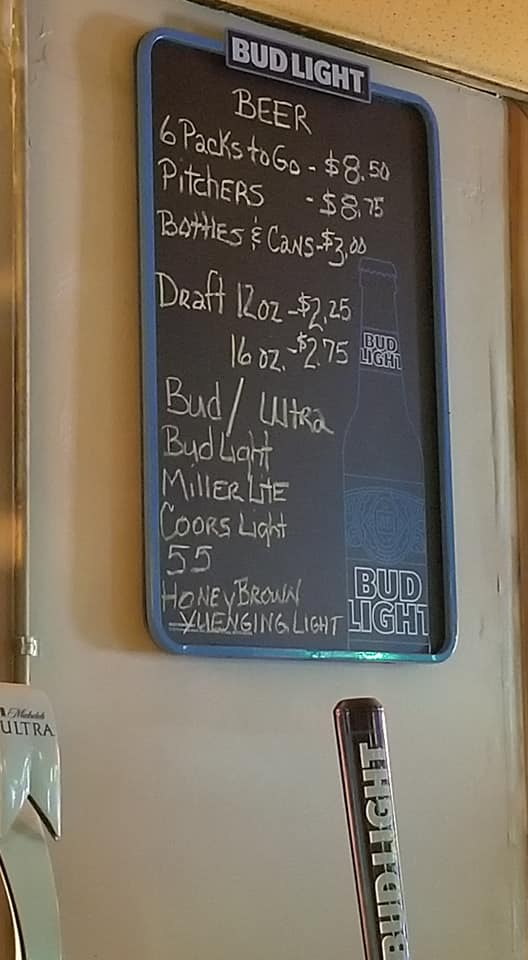 BUD LIGHT
BEER
6 Packs to Go - $8.50
PITCHERS - $8.75
BOTTLES & CANS - $3.00
Draft 12oz - $2.25
16 oz. - $2.75
Bud / Ultra
Bud Light
MILLER LITE
COORS Light
55
HONEY BROWN
YUENGING LIGHT
BUD
LIGHT
BUD
LIGHT
Michelob
ULTRA
BUD LIGHT